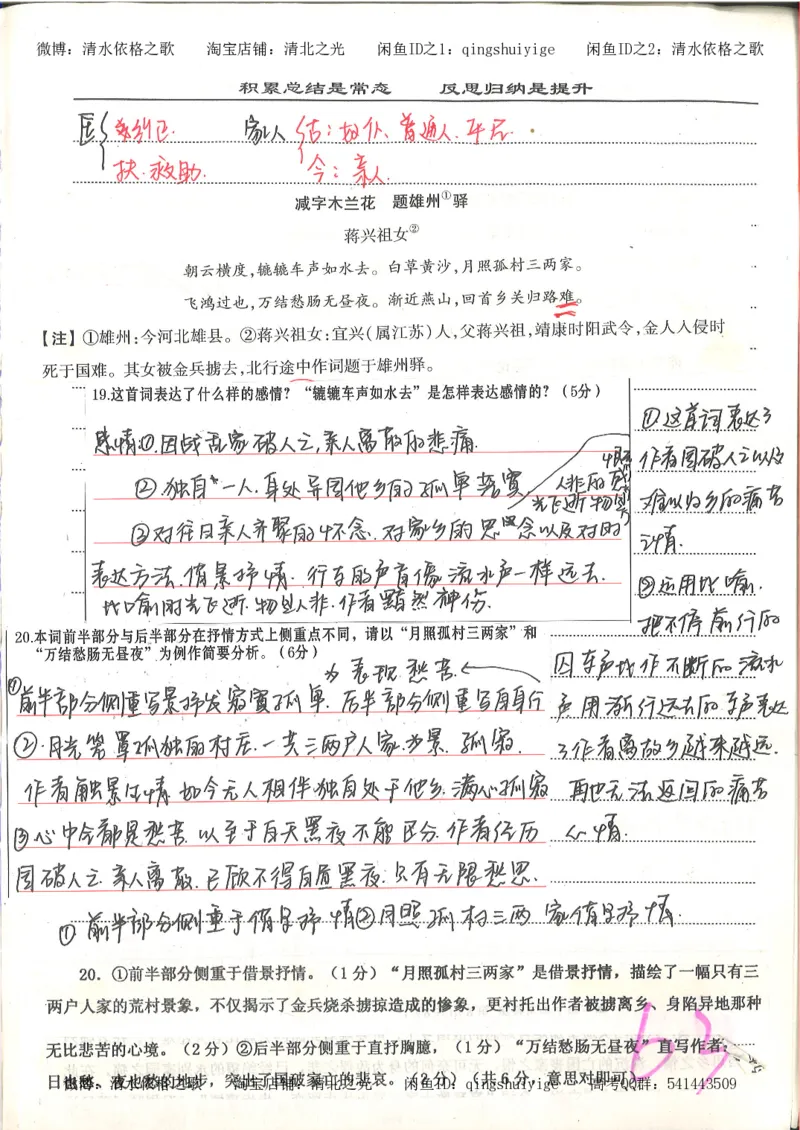 微博：清水依格之歌 淘宝店铺：清北之光 闲鱼ID之1：qingshuiyige 闲鱼ID之2：清水依格之歌
积累总结是常态 反思归纳是提升
匡 家人 古：奴仆、普通人、平民
扶、救助. 今：亲人.
减字木兰花 题雄州①驿
蒋兴祖女②
朝云横度，辘辘车声如水去。白草黄沙，月照孤村三两家。
飞鸿过也，万结愁肠无昼夜。渐近燕山，回首乡关归路难。
【注】①雄州：今河北雄县。②蒋兴祖女：宜兴（属江苏）人，父蒋兴祖，靖康时阳武令，金人入侵时
死于国难。其女被金兵掳去，北行途中作词题于雄州驿。
19.这首词表达了什么样的感情？“辘辘车声如水去”是怎样表达感情的？（5分）
感情①.因战乱家破人亡，亲人离散的悲痛.
②.独自一人.身处异国他乡的孤单苦寞
③对往日亲人齐聚的怀念.对家乡的思念以及对时
光飞逝物
人非的
表达方法.借景抒情.行车的声音像流水声一样远去.
比喻时光飞逝.物是人非.作者黯然神伤.
①这首词表达了
作者国破人亡以及
难以归乡的痛苦
之情.
②运用比喻.
把不停前行的
囚车声比作不断的流水
声用渐行远去的车声表达
了作者离故乡越来越远.
再也无法返回的痛苦
心情.
20.本词前半部分与后半部分在抒情方式上侧重点不同，请以“月照孤村三两家”和
“万结愁肠无昼夜”为例作简要分析。（6分）
为表现愁苦.
①前半部分侧重写景抒发寂寞孤单.后半部分侧重写自身行
②.月光笼罩孤独的村庄.一共三两户人家.为景.孤寂.
作者触景生情.如今无人相伴.独自处于他乡.满心孤寂
③心中全都是愁苦.以至于白天黑夜不能区分.作者经历
国破人亡.亲人离散.已顾不得白昼黑夜.只有无限愁思.
①前半部分侧重于借景抒情②月照孤村三两家借景抒情.
20．①前半部分侧重于借景抒情。（1分）“月照孤村三两家”是借景抒情，描绘了一幅只有三
两户人家的荒村景象，不仅揭示了金兵烧杀掳掠造成的惨象，更衬托出作者被掳离乡、身陷异地那种
无比悲苦的心境。（2分）②后半部分侧重于直抒胸臆，（1分）“万结愁肠无昼夜”直写作者：
日也愁，夜也愁的地步，突出了国破家亡的悲哀。（2分）（共6分，意思对即可）
微博：清水依格之歌 淘宝店铺：清北之光 闲鱼ID：qingshuiyige 高考QQ群：541443509
63